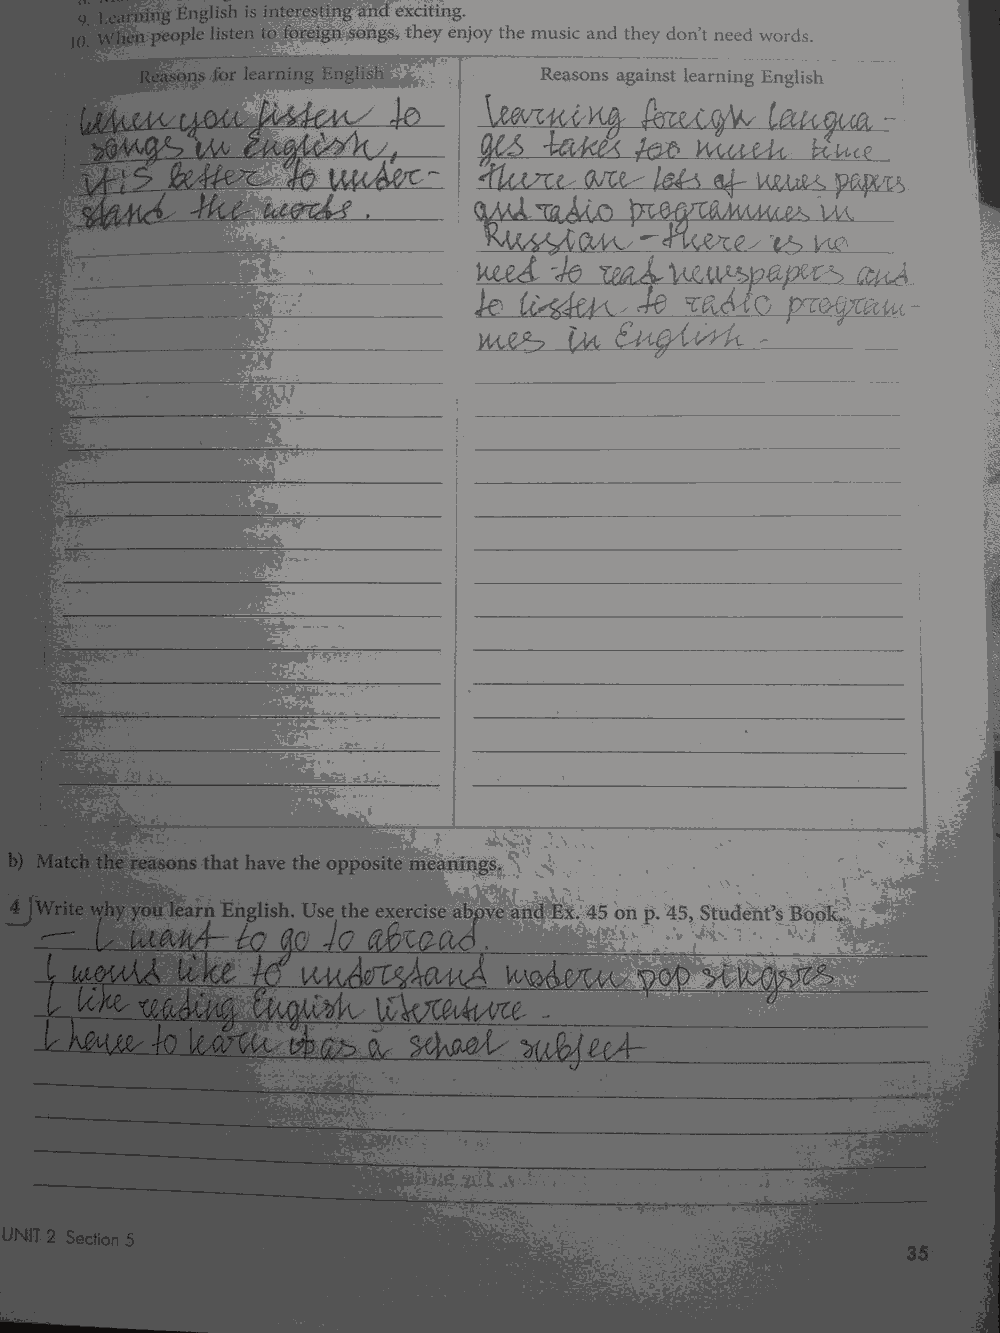 9. Learning English is interesting and exciting.
10. When people listen to foreign songs, they enjoy the music and they don't need words.
Reasons for learning English
When you listen to
songs in English,
it is better to under-
stand the words.
Reasons against learning English
Learning foreign langua-
ges takes too much time
There are lots of news papers
and radio programmes in
Russian - there is no
need to read newspapers and
to listen to radio program-
mes in English.
b) Match the reasons that have the opposite meanings.
4 Write why you learn English. Use the exercise above and Ex. 45 on p. 45, Student's Book.
— I want to go to abroad.
I would like to understand modern pop singers
I like reading English literature.
I have to learn it as a school subject
UNIT 2 Section 5
35